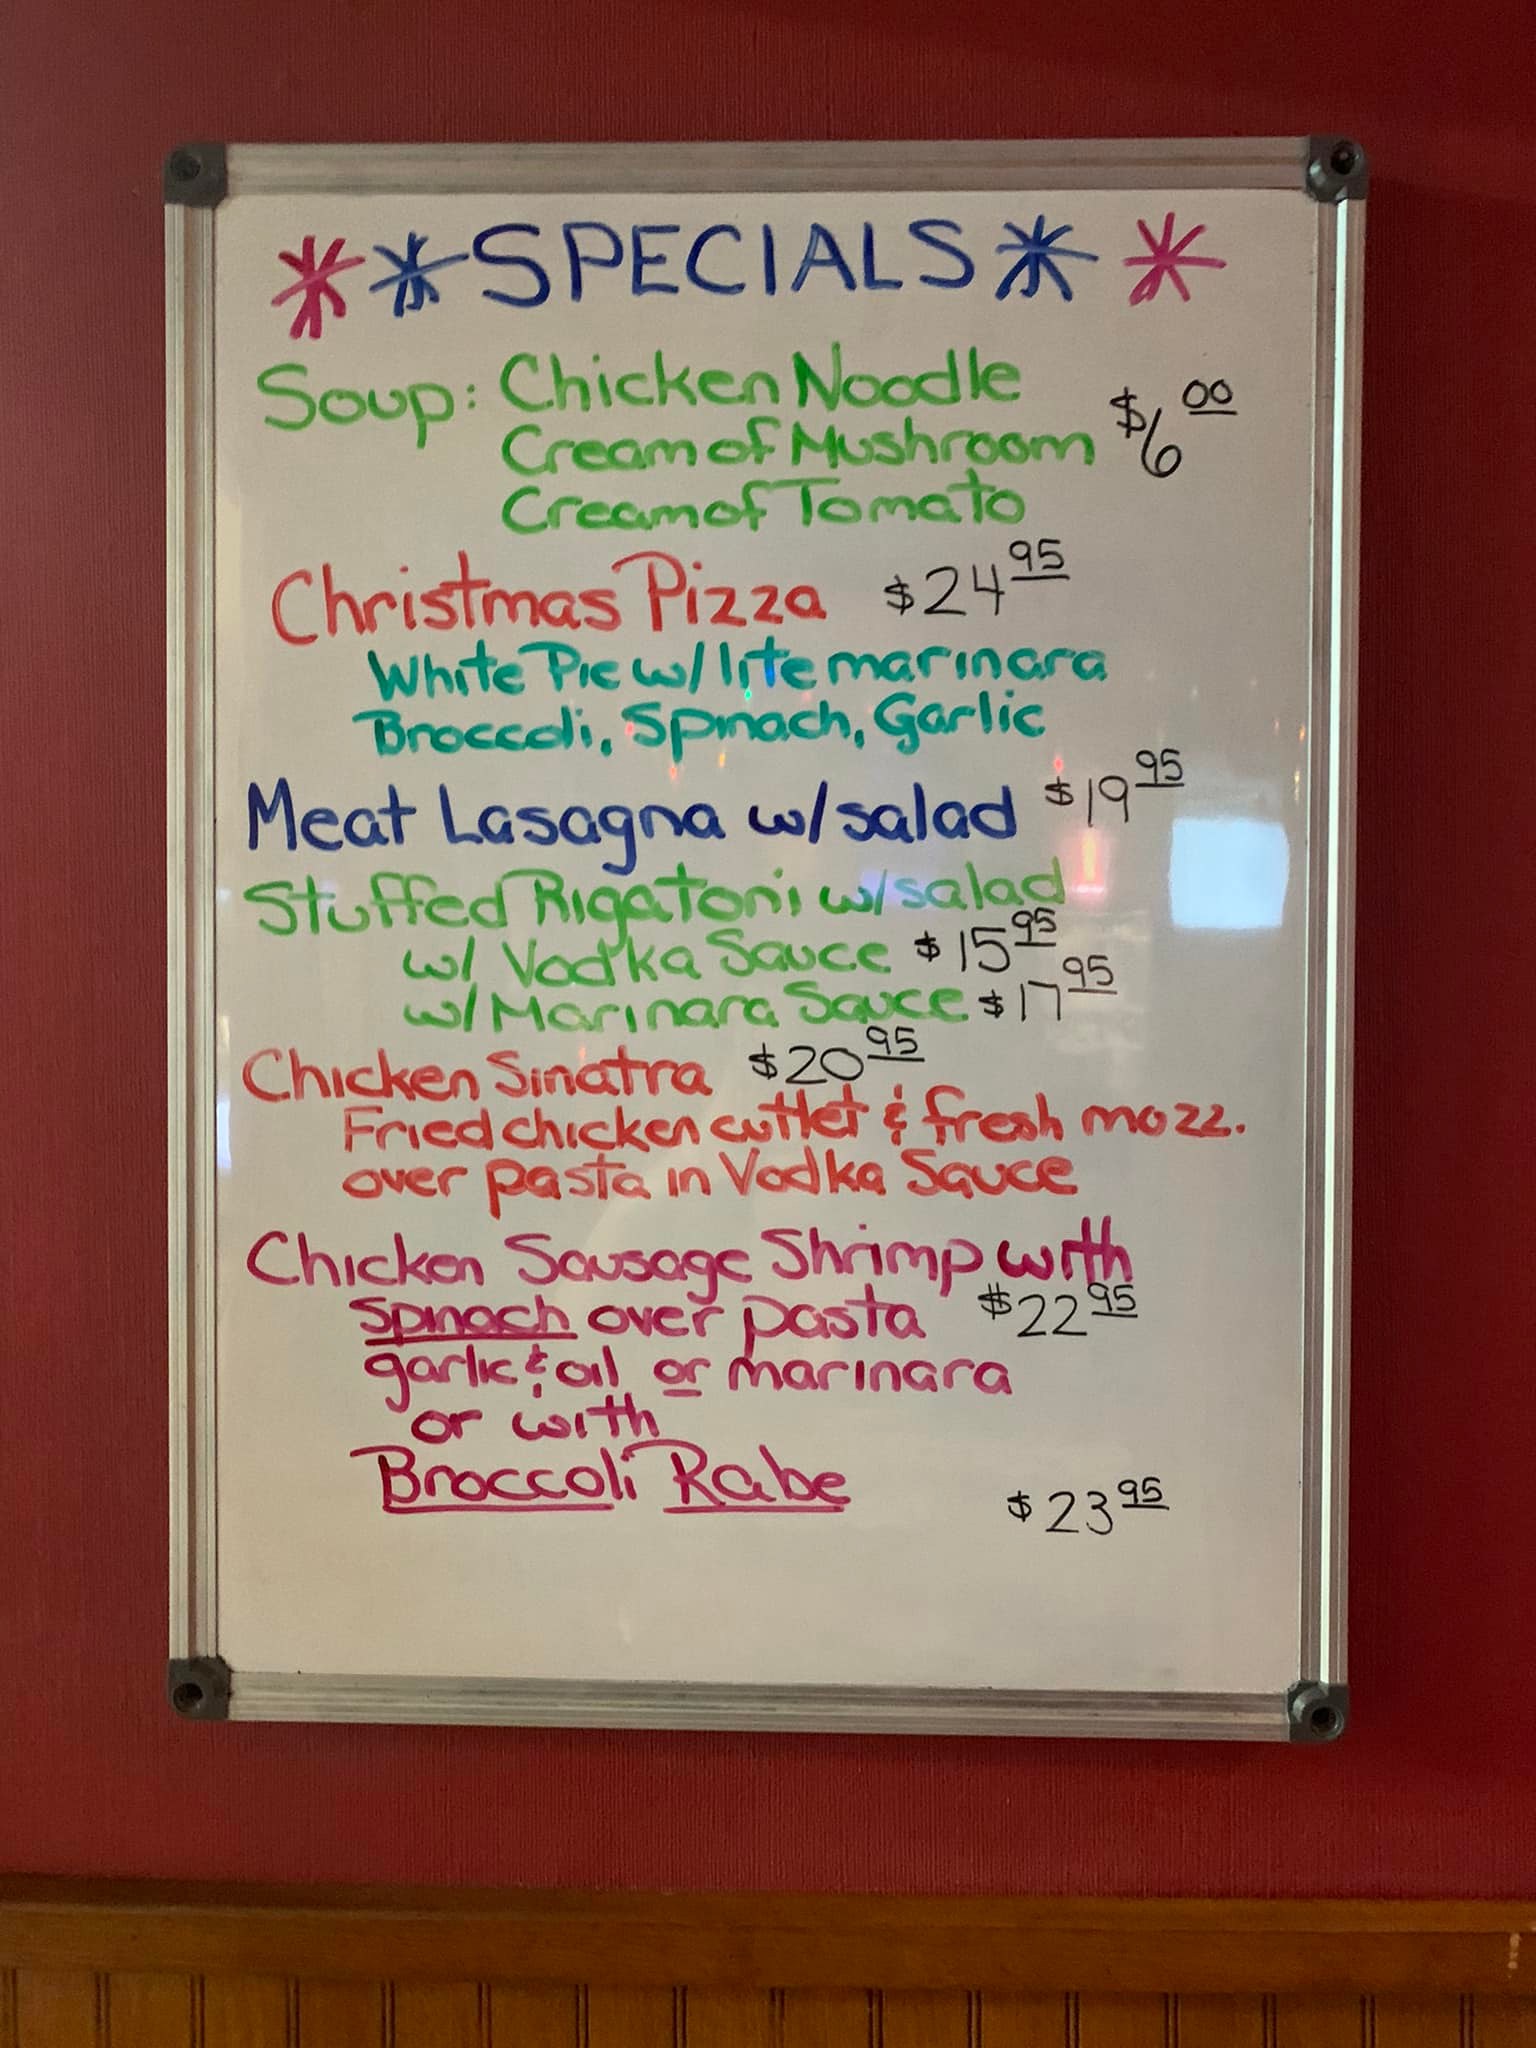 SPECIALS
Soup: Chicken Noodle
Cream of Mushroom $6 00
Cream of Tomato
Christmas Pizza $24 95
White Pie w/ lite marinara
Broccoli, Spinach, Garlic
Meat Lasagna w/salad $19 95
Stuffed Rigatoni w/salad
w/ Vodka Sauce $15 95
w/ Marinara Sauce $17 95
Chicken Sinatra $20 95
Fried chicken cuttlet & fresh mozz.
over pasta in Vodka Sauce
Chicken Sausage Shrimp with
Spinach over pasta $22 95
garlic & oil or marinara
or with
Broccoli Rabe $23 95